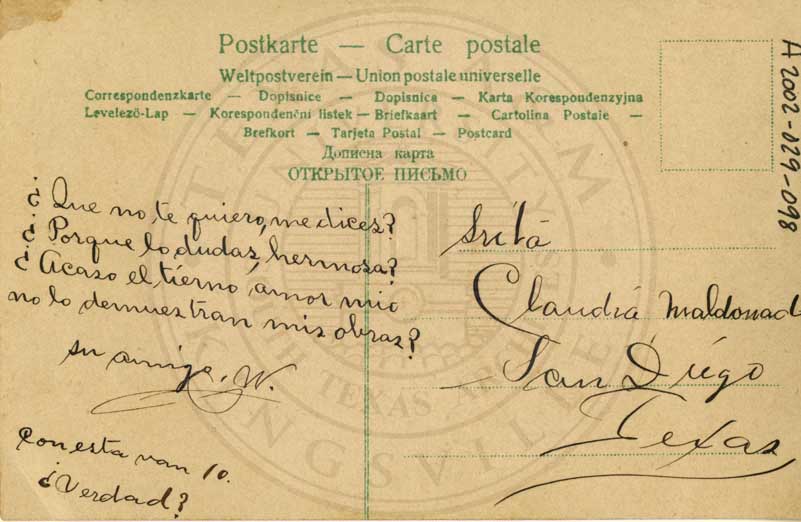 Postkarte — Carte postale
Weltpostverein — Union postale universelle
Correspondenzkarte — Dopisnice — Dopisnica — Karta Korespondenzyjna
Levelező-Lap — Korespondenčni listek — Briefkaart — Cartolina Postale —
Brefkort — Tarjeta Postal — Postcard
Дописна карта
ОТКРЫТОЕ ПИСЬМО
¿Que no te quiero, me dices?
¿Porque lo dudas, hermosa?
¿Acaso el tierno amor mio
no lo demuestran mis obras?
su amigo, W.
Con esta van 10.
¿Verdad?
Srita
Claudia Maldonad
San Diego
Texas
A2002-029-098
TEXAS
KINGSVILLE